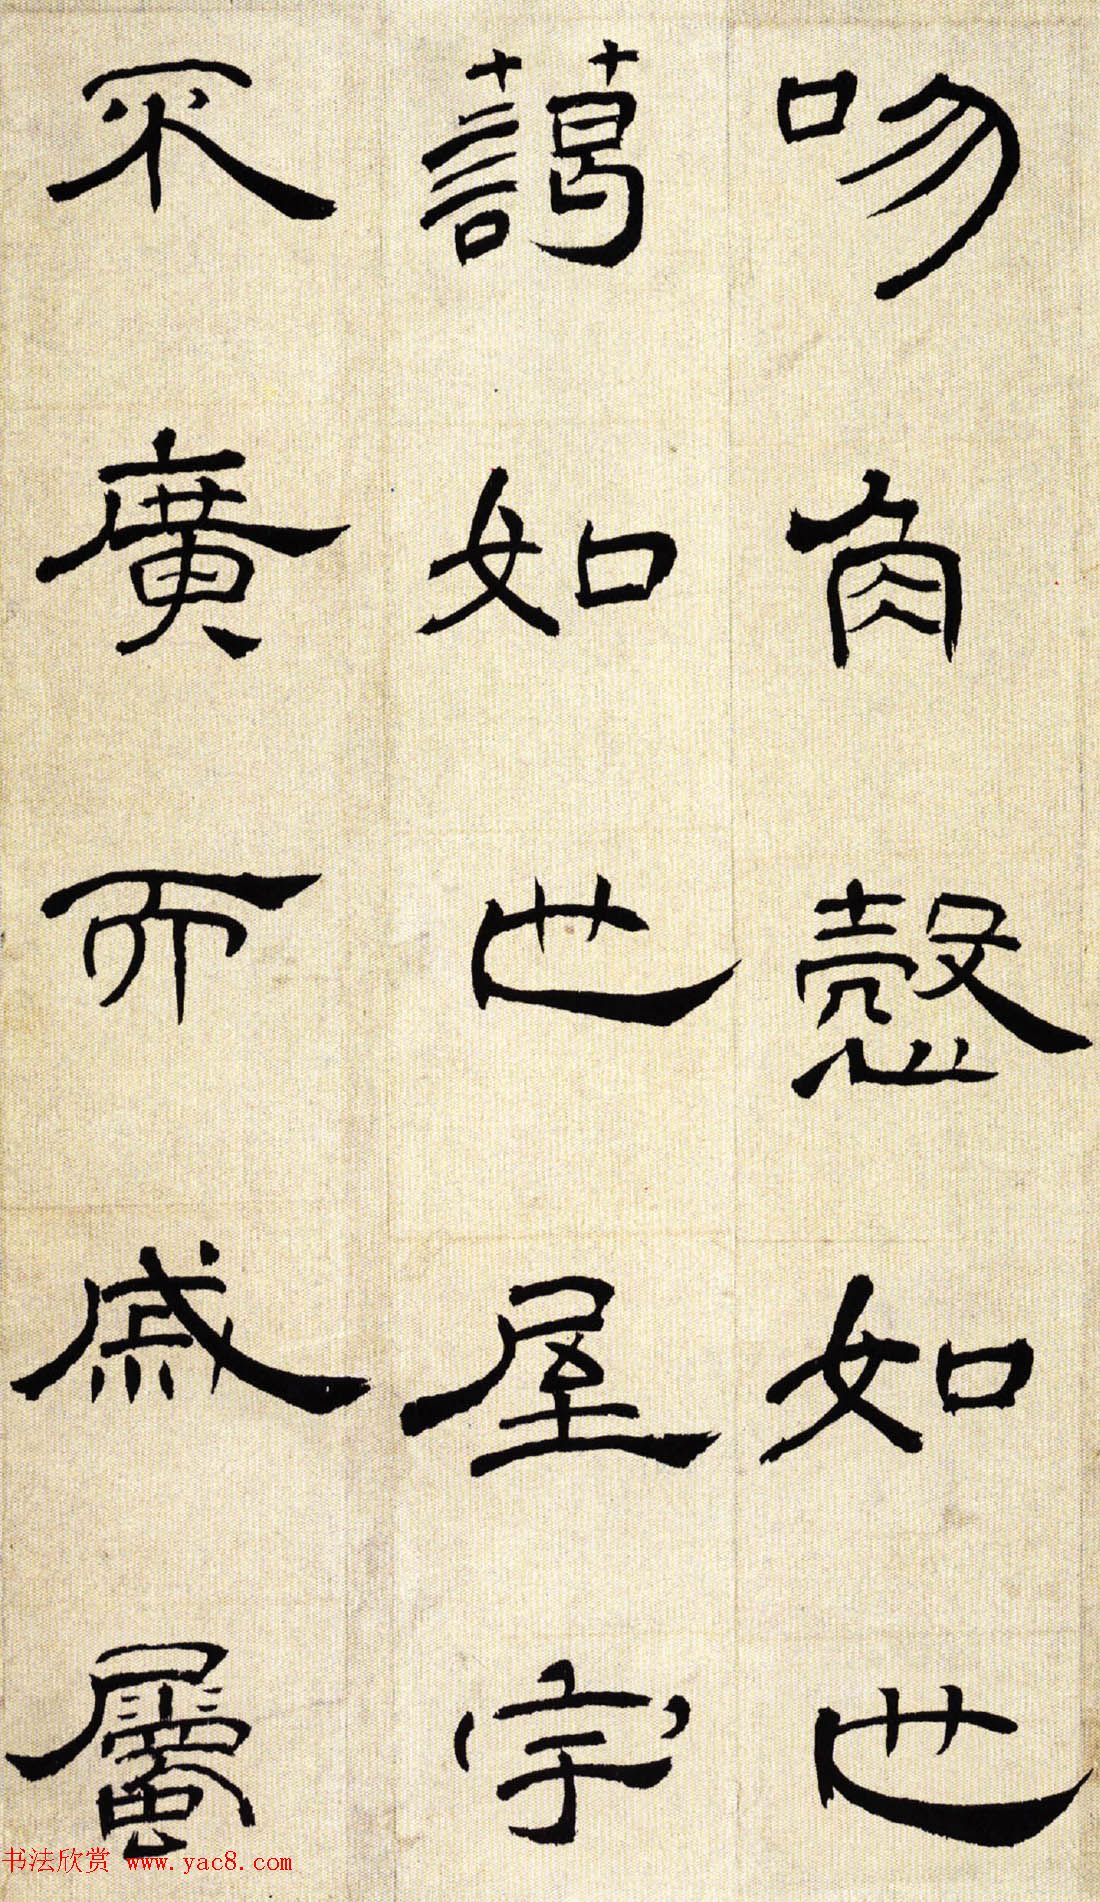 吻角慤如也
藹如也屋宇
不廣而戚屬
书法欣赏 www.yac8.com